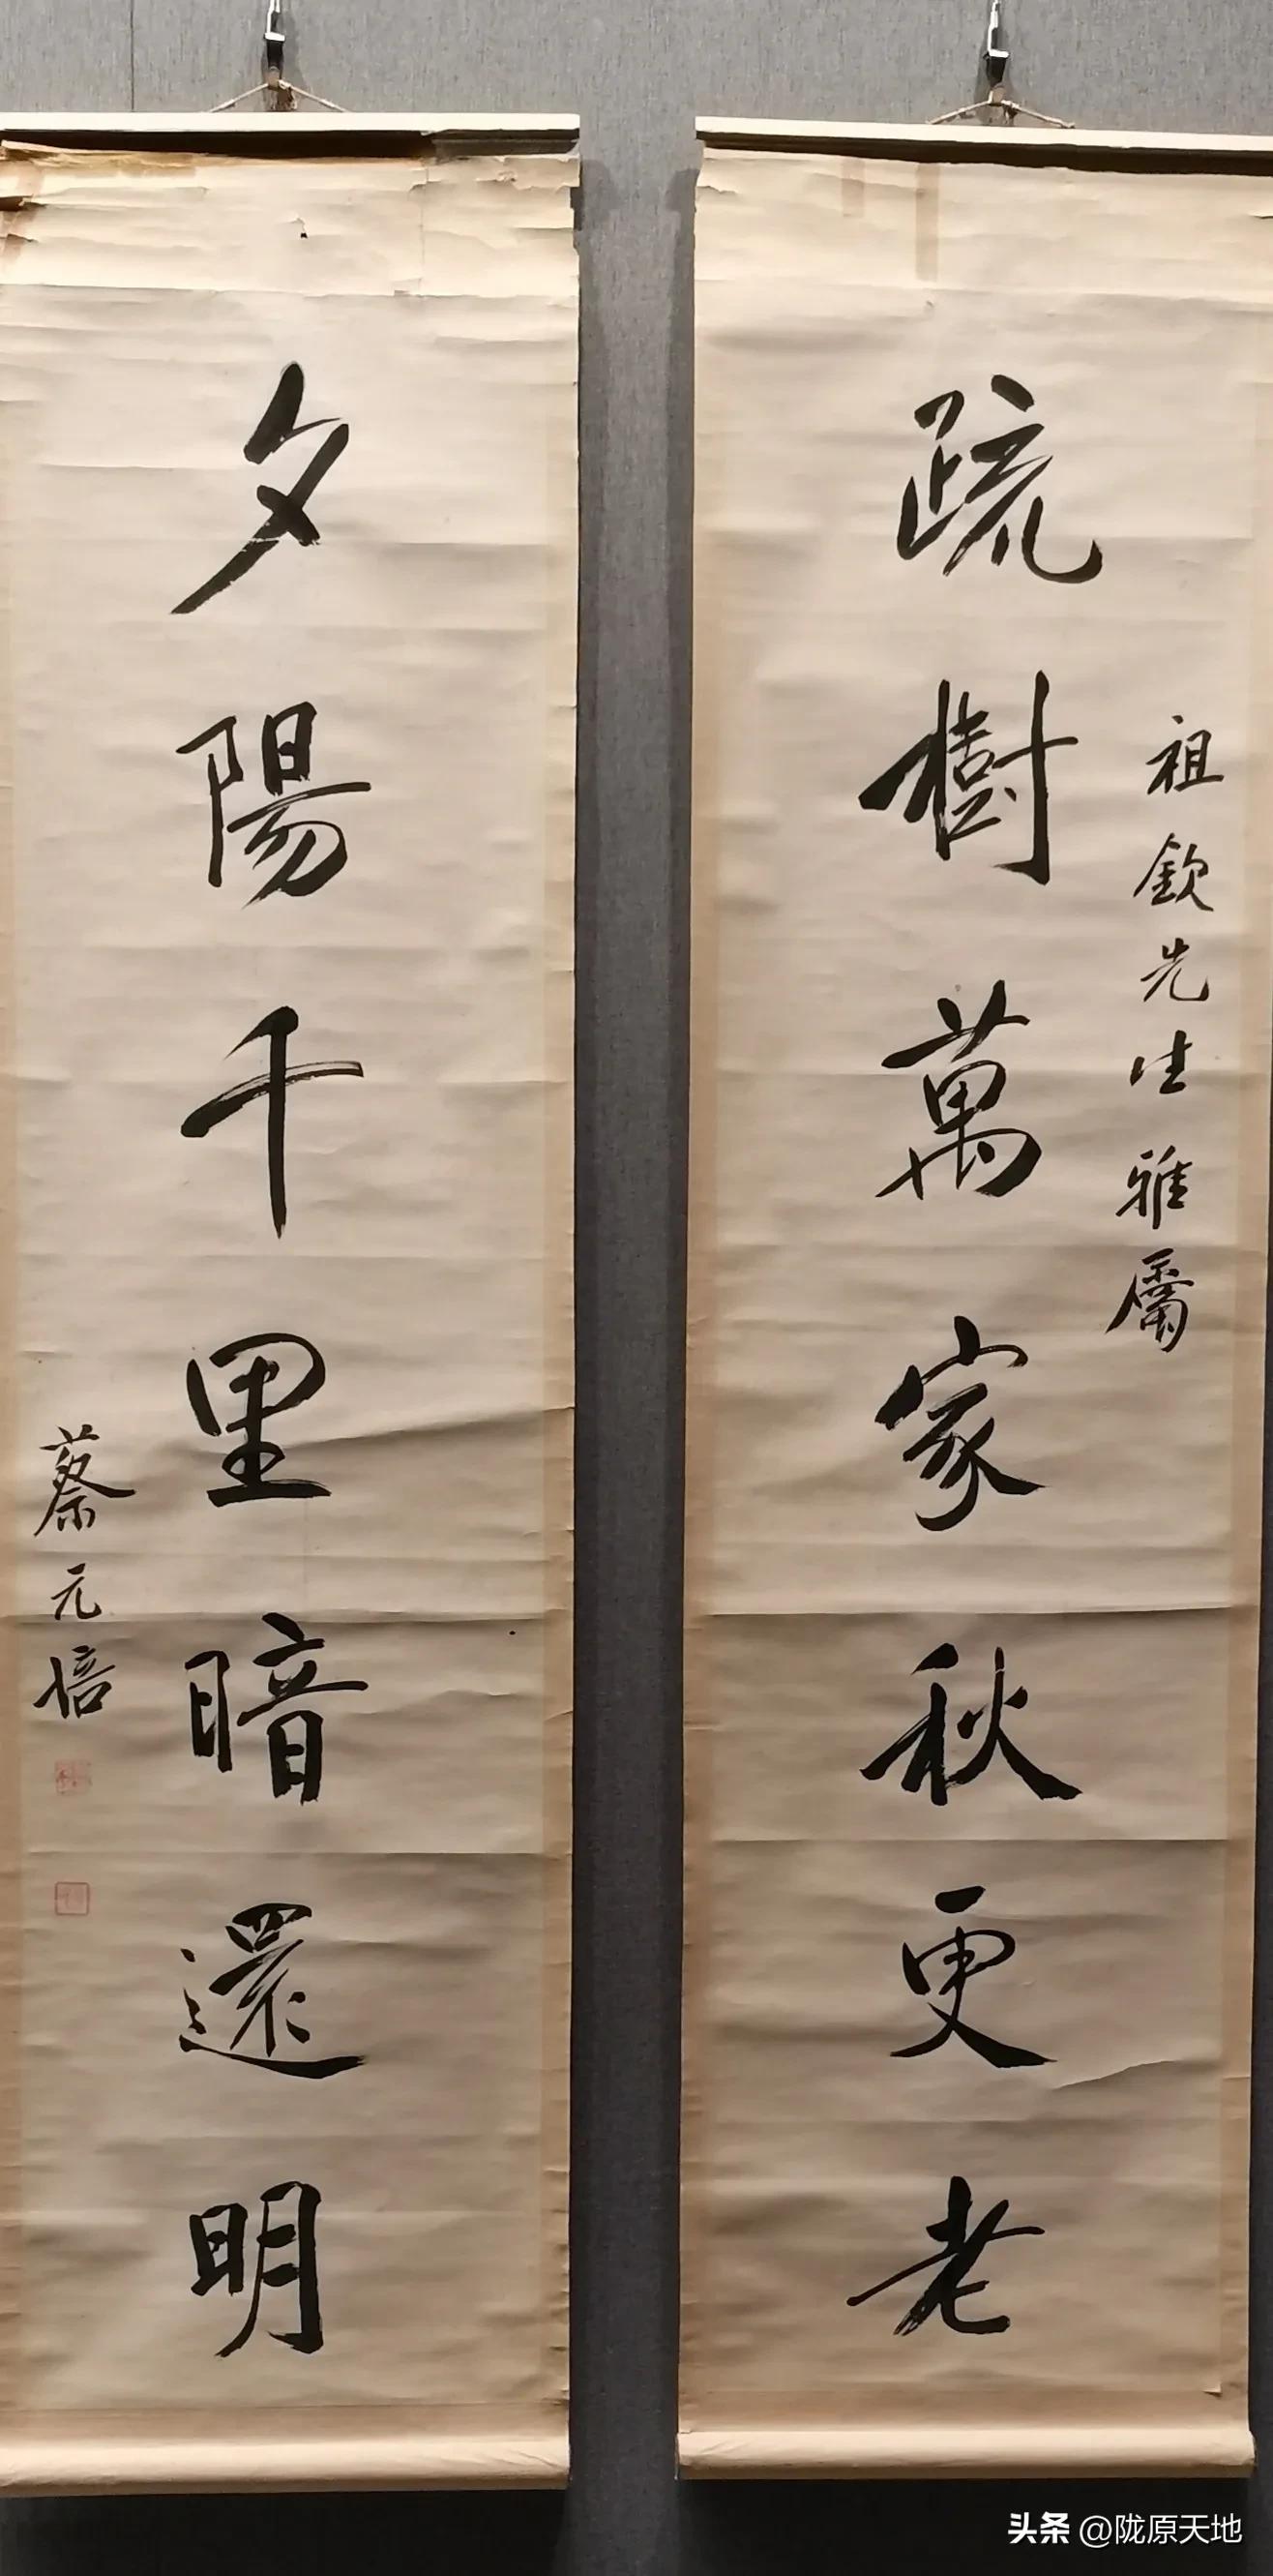 祖欽先生雅屬
疏樹萬家秋更老
夕陽千里暗還明
蔡元培
头条 @陇原天地